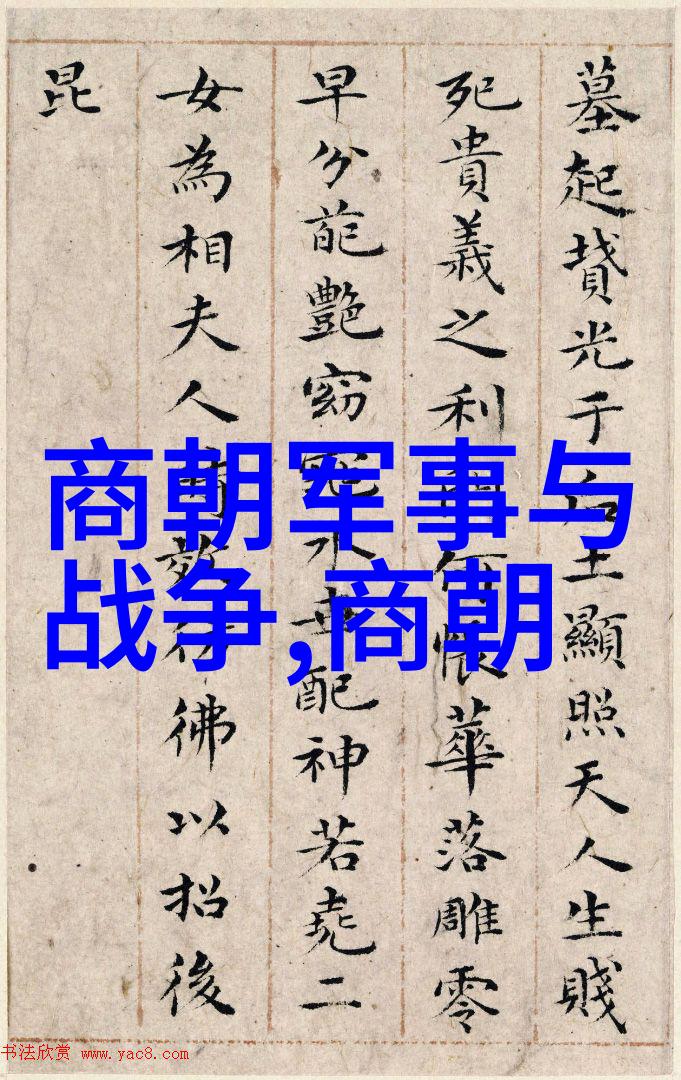 墓起光于土顯照天人生賤
死貴義之利何恨華落雕零
早分葩艷窈窕水配神若堯二
女為相夫人彿以招後
昆
商朝军事与
战争,商朝
书法欣赏 www.yac8.com